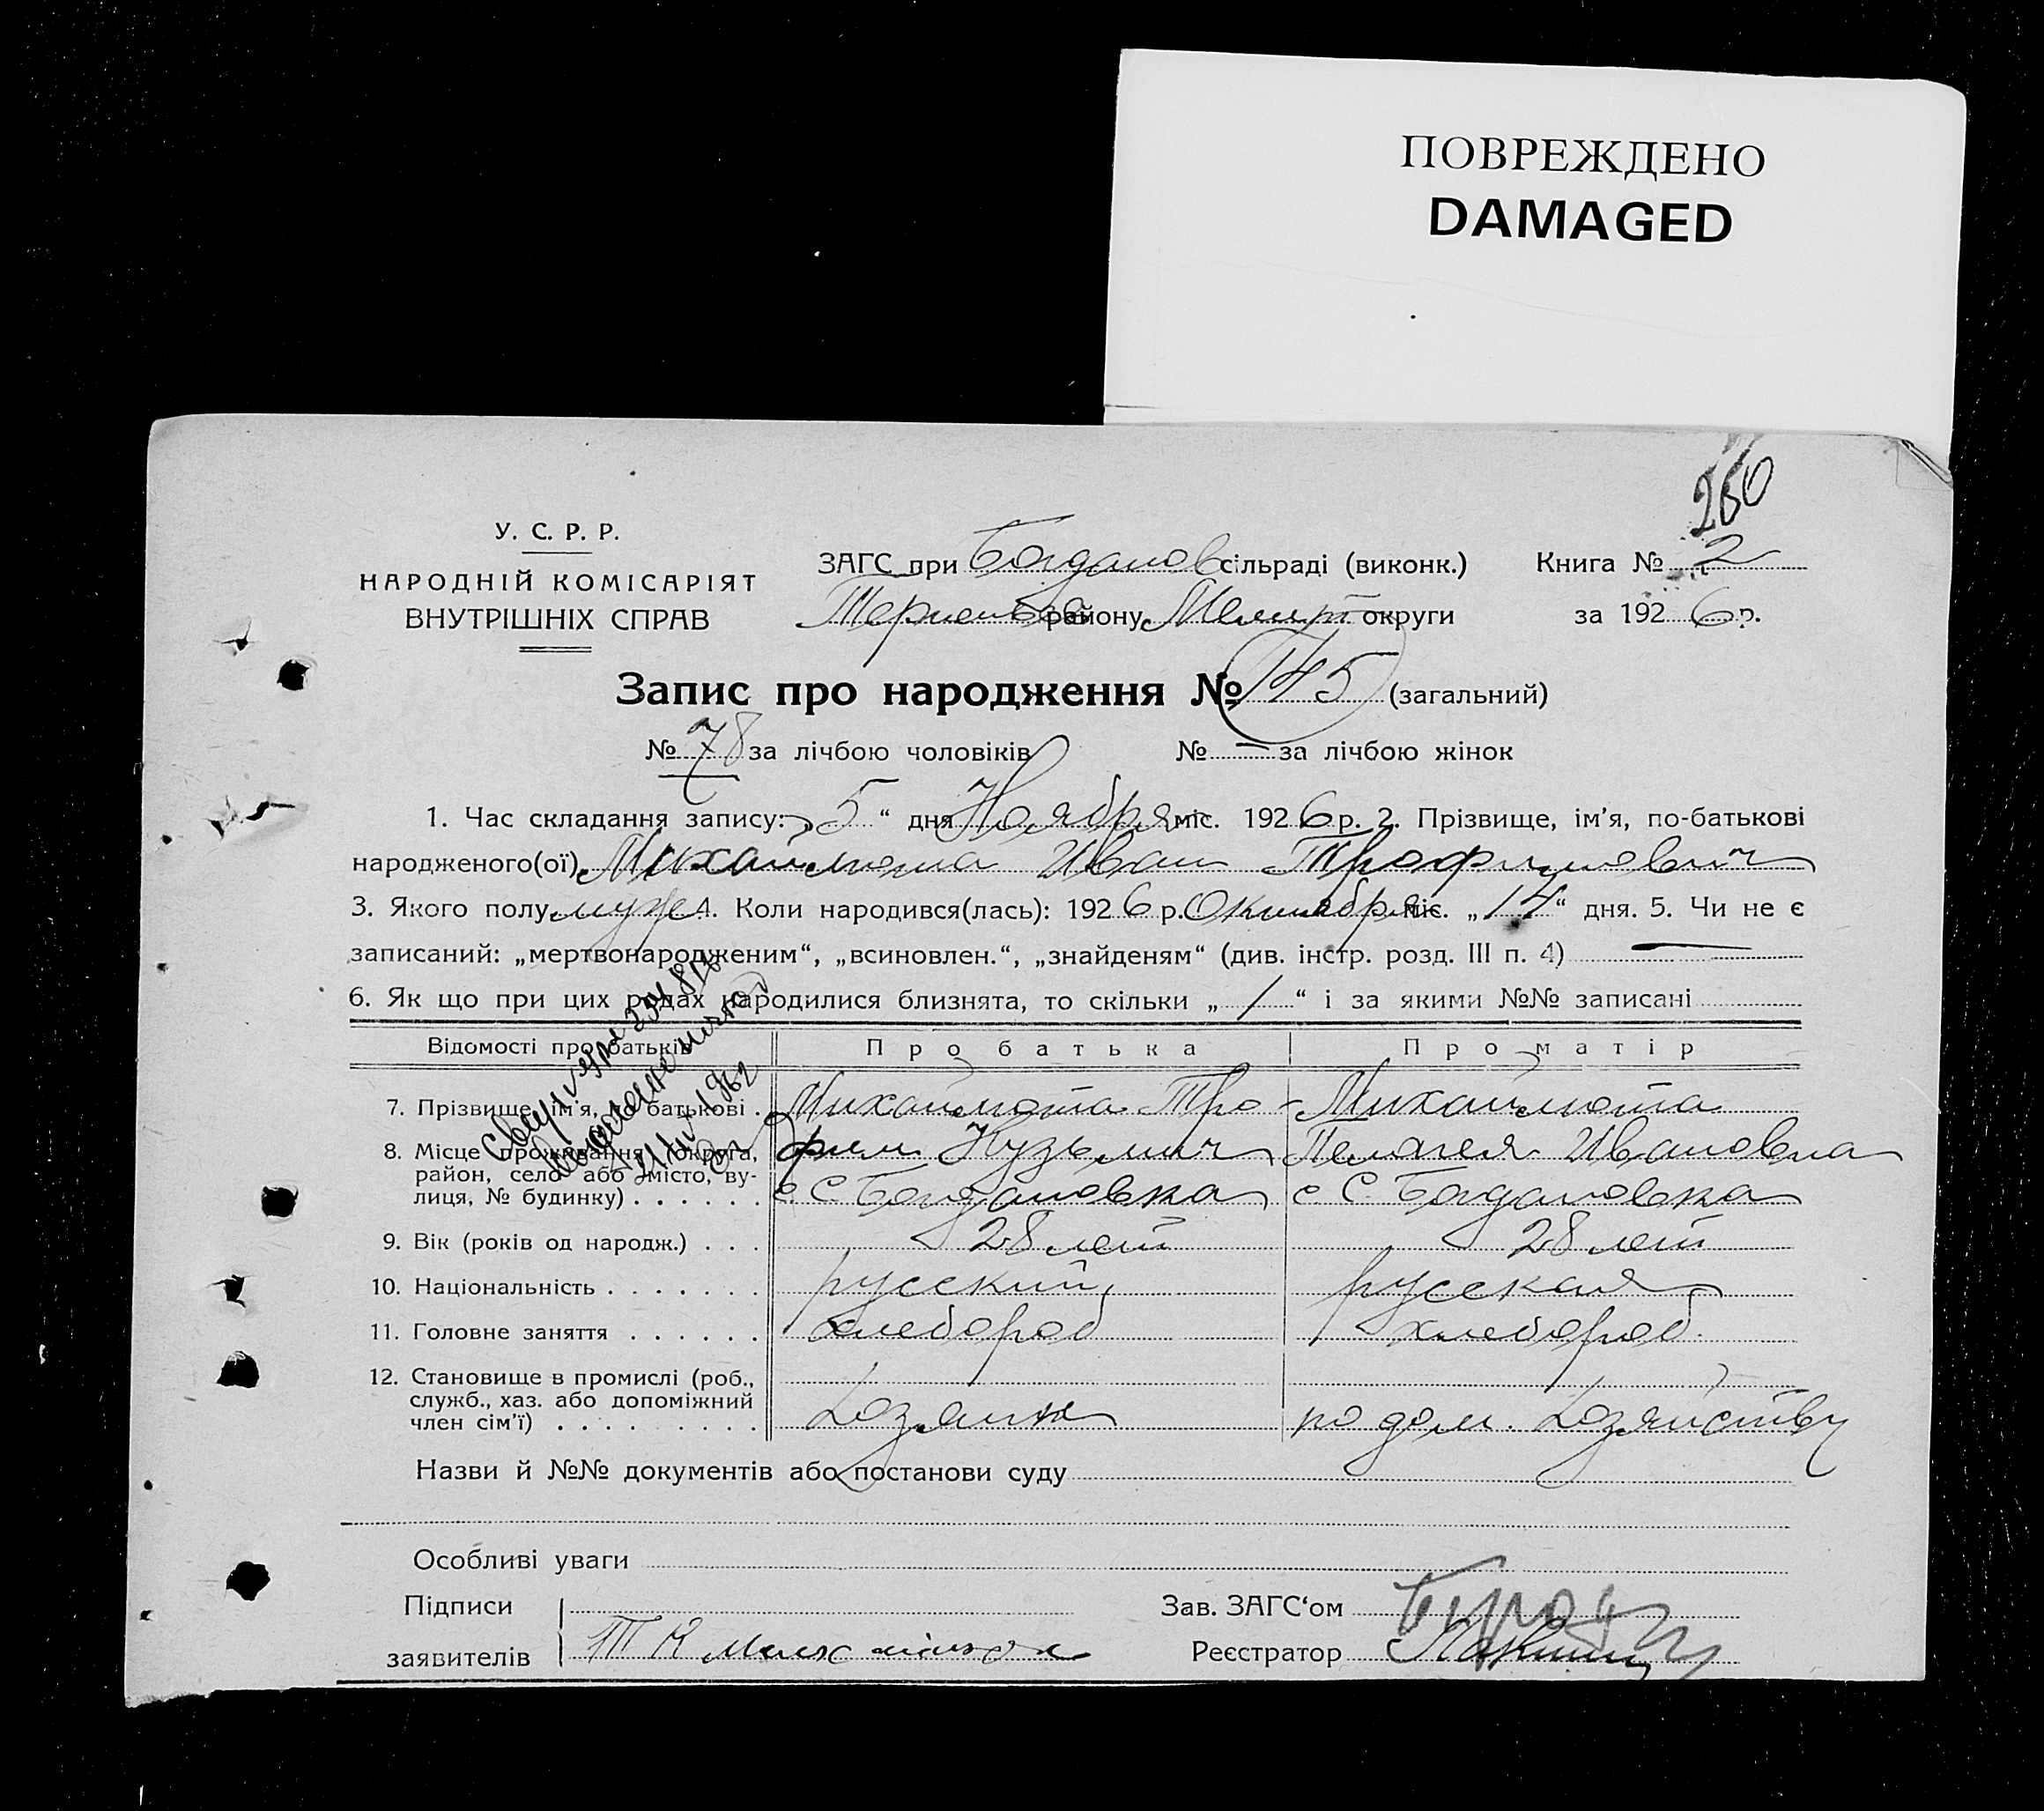 ПОВРЕЖДЕНО
DAMAGED
260
У. С. Р. Р.
НАРОДНІЙ КОМІСАРІЯТ
ВНУТРІШНІХ СПРАВ
ЗАГС при Богданов сільраді (виконк.)
района Мелит округи
Книга № 2
за 1926 р.
Запис про народження № 145 (загальний)
№ 78 за лічбою чоловіків № — за лічбою жінок
1. Час складання запису: „5“ дня Ноября міс. 1926 р. 2. Прізвище, ім'я, по-батькові
народженого(ої) Михайлюта Иван Трофимович
3. Якого полу муж 4. Коли народився(лась): 1926 р. Октября міс. „14“ дня. 5. Чи не є
записаний: „мертвонародженим“, „всиновлен.“, „знайденям“ (див. інстр. розд. III п. 4) —
6. Як що при цих родах народилися близнята, то скільки „/“ і за якими №№ записані
Відомості про батьків Про батька Про матір
7. Прізвище, ім'я, по батькові . Михайлюта Тро- Михайлюта
8. Місце проживання (округа, фим Кузьмич Пелагея Ивановна
район, село або місто, ву-
лиця, № будинку) . . . . . . с. Богдановка с. Богдановка
9. Вік (років од народж.) . . . 28 лет 28 лет
10. Національність . . . . . . . русский русская
11. Головне заняття . . . . . . хлебороб хлебороб
12. Становище в промислі (роб.,
служб., хаз. або допоміжний
член сім'ї) . . . . . . . . . Хозяин по дом. Хозяйству
Назви й №№ документів або постанови суду
Особливі уваги
Підписи
заявителів Т К
Зав. ЗАГС‘ом
Реєстратор